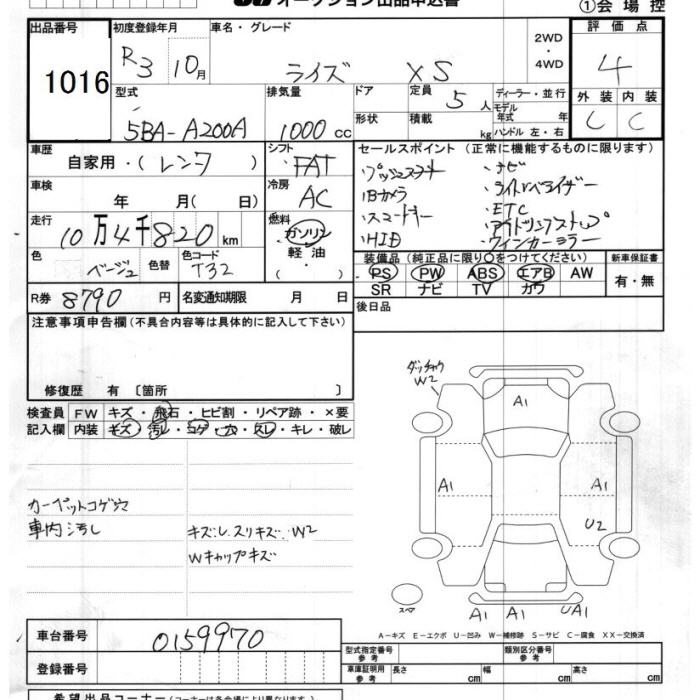 オークション出品申込書
①会場控
出品番号 初度登録年月 車名・グレード 2WD ・ 4WD 評価点
1016 R3 10月 ライズ XS 4
型式 排気量 ドア 定員 5人 ディーラー・並行 外装 内装
5BA-A200A 1000cc 形状 積載 kg モデル年式 年 ハンドル 左・右 C C
車歴 自家用・(レンタ) シフト FAT
セールスポイント (正常に機能するものに限ります)
・プッシュスタート ・ナビ
・Bカメラ ・ライトレベライザー
・スマートキー ・ETC
・アイドリングストップ
・HID ・ウィンカーミラー
車検 年 月( 日) 冷房 AC
走行 10万4千820km 燃料 ガソリン 軽油
色 ベージュ 色替 色コード T32
装備品 (純正品に限り○をつけてください) 新車保証書
PS PW ABS エアB AW 有・無
SR ナビ TV カワ
R券 8790円 名変通知期限 月 日 後日品
注意事項申告欄(不具合内容等は具体的に記入して下さい)
修復歴 有 〔箇所 〕
検査員 FW キズ・飛石・ヒビ割・リペア跡・×要
記入欄 内装 キズ・汚レ・コゲ・穴・スレ・キレ・破レ
カーペットコゲ穴
車内汚し キズU スリキズ W2
Wキャップキズ
W2
A1
A1 A1
U2
スペア A1 A1 UA1
A-キズ E-エクボ U-凹み W-補修跡 S-サビ C-腐食 XX-交換済
車台番号 0159970
型式指定番号 参考 類別区分番号 参考
登録番号 車庫証明用 参考 長さ cm 幅 cm 高さ cm
希望出品コーナー